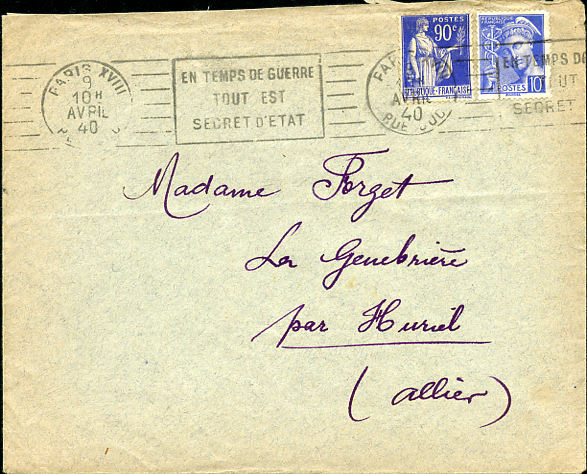 PARIS XVIII
9
10H
AVRIL
40
EN TEMPS DE GUERRE
TOUT EST
SECRET D'ETAT
POSTES
90c
REPUBLIQUE-FRANÇAISE
REPUBLIQUE FRANÇAISE
POSTES 10c
AVRIL
40
EN TEMPS DE
UT
SECRET
Madame Forget
La Genebrière
par Huriel
(allier)